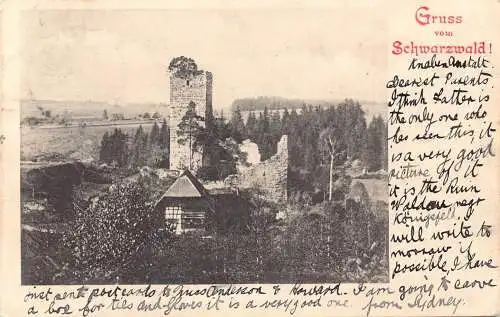 Gruss
vom
Schwarzwald!
Knabenanstalt.
Dearest Parents
I think Latter is
the only one who
has seen this, it
is a very good
picture of it
it is the Ruin
Waldau, near
Königsfeld, I
will write to
morrow if
possible, I have
just sent postcards to Gussanderson & Howard. I am going to carve
a box for ties and gloves it is a very good one. from Sydney.